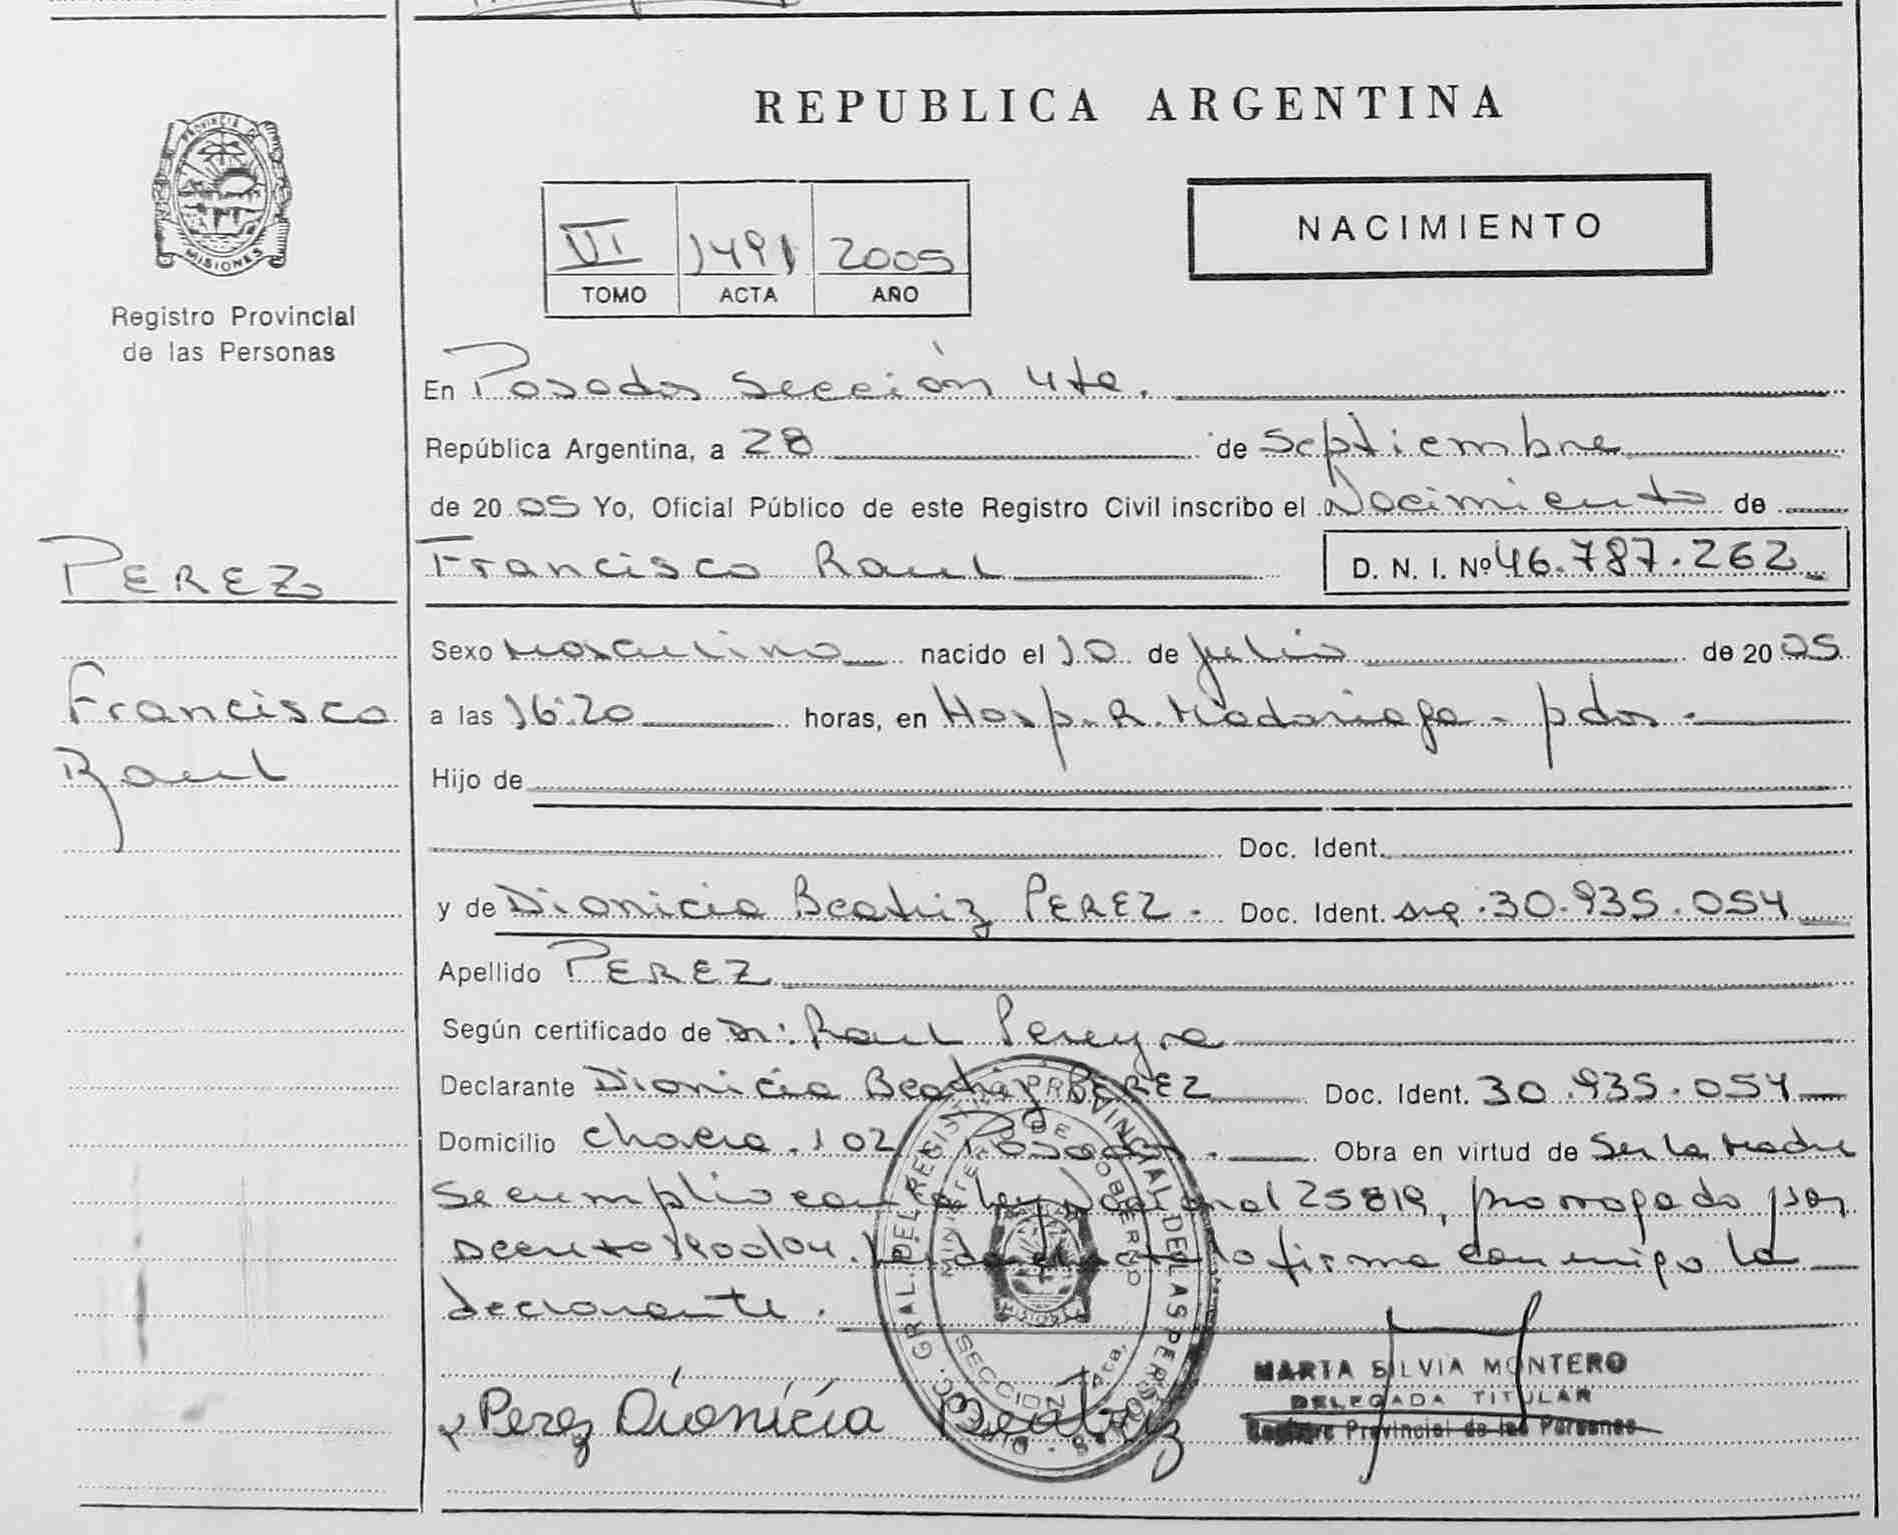 REPUBLICA ARGENTINA
PROVINCIA DE
MISIONES
Registro Provincial
de las Personas
VI 1491 2005
TOMO ACTA AÑO
NACIMIENTO
En Posadas Sección 4ta.
República Argentina, a 28 de Septiembre
de 2005 Yo, Oficial Público de este Registro Civil inscribo el Nacimiento de
PEREZ
Francisco Raul D. N. I. Nº 46.787.262
Sexo Masculino nacido el 10 de julio de 2005
Francisco
a las 16:20 horas, en Hosp. R. Madariaga - pdas -
Raul
Hijo de
Doc. Ident.
y de Dionicia Beatriz PEREZ - Doc. Ident. 30.935.054
Apellido PEREZ
Según certificado de Dr: Raul Pereyra
Declarante Dionicia Beatriz PEREZ Doc. Ident. 30.935.054
Domicilio Chacra 102 Posadas - Obra en virtud de Ser la Madre
Se cumplio con la ley Nacional 25819, prorrogado por
Decreto 1900/04. Leida el acta la firma conmigo la
declarante.
DIREC. GRAL. DEL REGISTRO PROVINCIAL DE LAS PERSONAS
MINISTERIO DE GOBIERNO
SECCION 4ta.
MARTA SILVIA MONTERO
DELEGADA TITULAR
Registro Provincial de las Personas
Perez Dionicia Beatriz